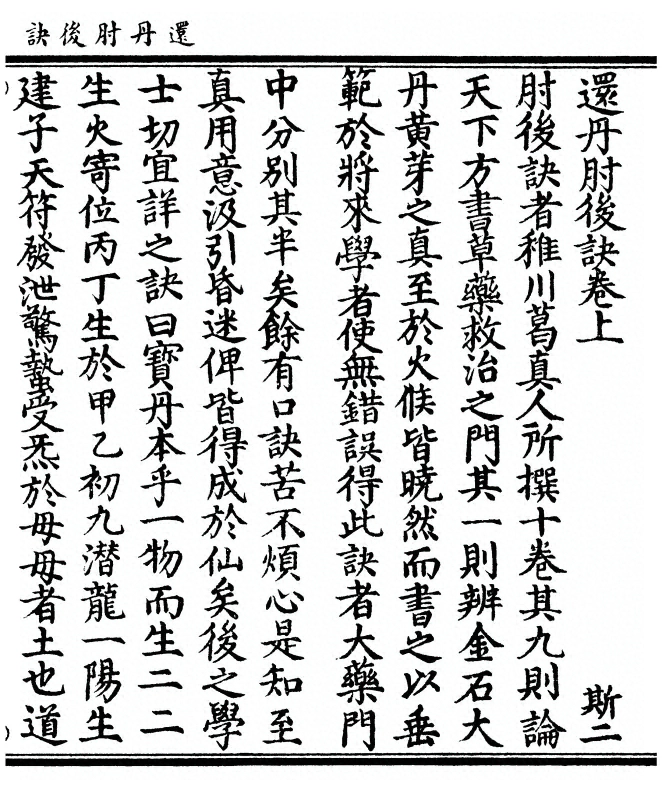 還丹肘後訣
還丹肘後訣卷上 斯二
肘後訣者稚川葛真人所撰十卷其九則論
天下方書草藥救治之門其一則辨金石大
丹黃芽之真至於火候皆曉然而書之以垂
範於將來學者使無錯誤得此訣者大藥門
中分別其半矣餘有口訣苦不煩心是知至
真用意汲引昏迷俾皆得成於仙矣後之學
士切宜詳之訣曰寶丹本乎一物而生二二
生火寄位丙丁生於甲乙初九潜龍一陽生
建子天符發泄驚蟄受炁於母母者土也道